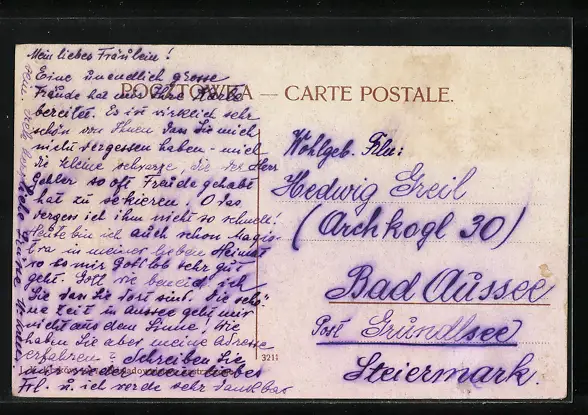 Mein liebes Fräulein!
Eine unendlich grosse
Freude hat mir Ihre Karte
bereitet. Es ist wirklich sehr
schön von Ihnen dass Sie mich
nicht vergessen haben - mich
die kleine schwarze, die der Herr
so oft Freude gehabt
hat zu sekieren! O das
vergess ich ihm nicht so schnell!
Heute bin ich auch schon Magis-
tra in meiner lieben Heimat
wo es mir Gottlob sehr gut
geht. Sie ich
Sie dass Sie dort sind. Die schö-
ne Zeit in Aussee geht mir
nicht aus dem Sinne! Wie
haben Sie aber meine Adresse
erfahren? Schreiben Sie
mir wieder mein liebes
Frl. u. ich werde sehr dankbar
POCZTÓWKA — CARTE POSTALE.
Wohlgeb. Frln:
Hedwig Greil
(Archkogl 30)
Bad Aussee
Post Grundlsee
Steiermark.
3211